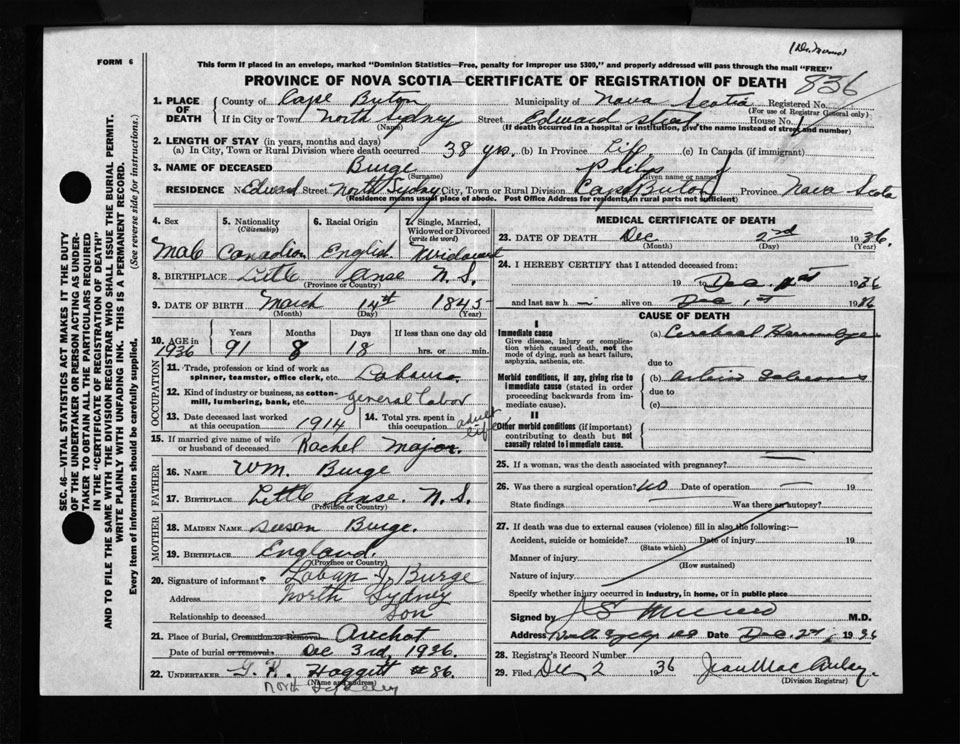 FORM 6
This form if placed in an envelope, marked "Dominion Statistics—Free, penalty for improper use $300," and properly addressed will pass through the mail "FREE"
PROVINCE OF NOVA SCOTIA—CERTIFICATE OF REGISTRATION OF DEATH 836
1. PLACE OF DEATH County of Cape Breton Municipality of Nova Scotia Registered No.
(For use of Registrar General only)
If in City or Town North Sydney Street Edward Street House No.
(Name) (If death occurred in a hospital or institution, give the name instead of street and number)
2. LENGTH OF STAY (in years, months and days)
(a) In City, Town or Rural Division where death occurred 38 yrs. (b) In Province Life (c) In Canada (if immigrant)
3. NAME OF DECEASED Burge Philip J
(Surname) (Given name or names)
RESIDENCE No. Edward Street North Sydney City, Town or Rural Division Cape Breton Province Nova Scotia
(Residence means usual place of abode. Post Office Address for residents in rural parts not sufficient)
4. Sex 5. Nationality (Citizenship) 6. Racial Origin 7. Single, Married, Widowed or Divorced (write the word)
Male Canadian English Widowed
8. BIRTHPLACE Little Anse N.S.
(Province or Country)
9. DATE OF BIRTH March 14th 1845
(Month) (Day) (Year)
10. AGE in 1936 Years Months Days If less than one day old
91 8 18 hrs. or min.
OCCUPATION
11. Trade, profession or kind of work as spinner, teamster, office clerk, etc. Laborer
12. Kind of industry or business, as cotton-mill, lumbering, bank, etc. general Labor
13. Date deceased last worked at this occupation 1914 14. Total yrs. spent in this occupation adult life
15. If married give name of wife or husband of deceased Rachel Major.
FATHER
16. NAME Wm. Burge
17. BIRTHPLACE Little Anse. N.S.
(Province or Country)
MOTHER
18. MAIDEN NAME Susan Burge.
19. BIRTHPLACE England.
(Province or Country)
20. Signature of informant Laban J. Burge
Address North Sydney
Relationship to deceased Son
21. Place of Burial, Cremation or Removal Arichat
Date of burial or removal Dec 3rd, 1936.
22. UNDERTAKER G. R. Hoggett #86.
(Name and address)
North Sydney
MEDICAL CERTIFICATE OF DEATH
23. DATE OF DEATH Dec 2nd 1936.
(Month) (Day) (Year)
24. I HEREBY CERTIFY that I attended deceased from:
19 to Dec. 1st 1936
and last saw h alive on Dec 1st 1936
CAUSE OF DEATH
I
Immediate cause
Give disease, injury or complication which caused death, not the mode of dying, such as heart failure, asphyxia, asthenia, etc.
(a) Cerebral Hemorrhage
due to
Morbid conditions, if any, giving rise to immediate cause (stated in order proceeding backwards from immediate cause).
(b) Arterio Sclerosis
due to
(c)
II
Other morbid conditions (if important) contributing to death but not causally related to immediate cause.
25. If a woman, was the death associated with pregnancy?
26. Was there a surgical operation? No Date of operation 19
State findings Was there an autopsy?
27. If death was due to external causes (violence) fill in also the following:—
Accident, suicide or homicide? Date of injury 19
(State which)
Manner of injury
(How sustained)
Nature of injury
Specify whether injury occurred in industry, in home, or in public place
Signed by M.D.
Address Date Dec. 2nd, 1936
28. Registrar's Record Number
29. Filed Dec 2 1936 Jean MacAulay
(Division Registrar)
SEC. 46—VITAL STATISTICS ACT MAKES IT THE DUTY
OF THE UNDERTAKER OR PERSON ACTING AS UNDER-
TAKER TO OBTAIN ALL THE PARTICULARS REQUIRED
IN THE "CERTIFICATE OF REGISTRATION OF DEATH"
AND TO FILE THE SAME WITH THE DIVISION REGISTRAR WHO SHALL ISSUE THE BURIAL PERMIT.
WRITE PLAINLY WITH UNFADING INK. THIS IS A PERMANENT RECORD.
Every item of information should be carefully supplied. (See reverse side for instructions.)